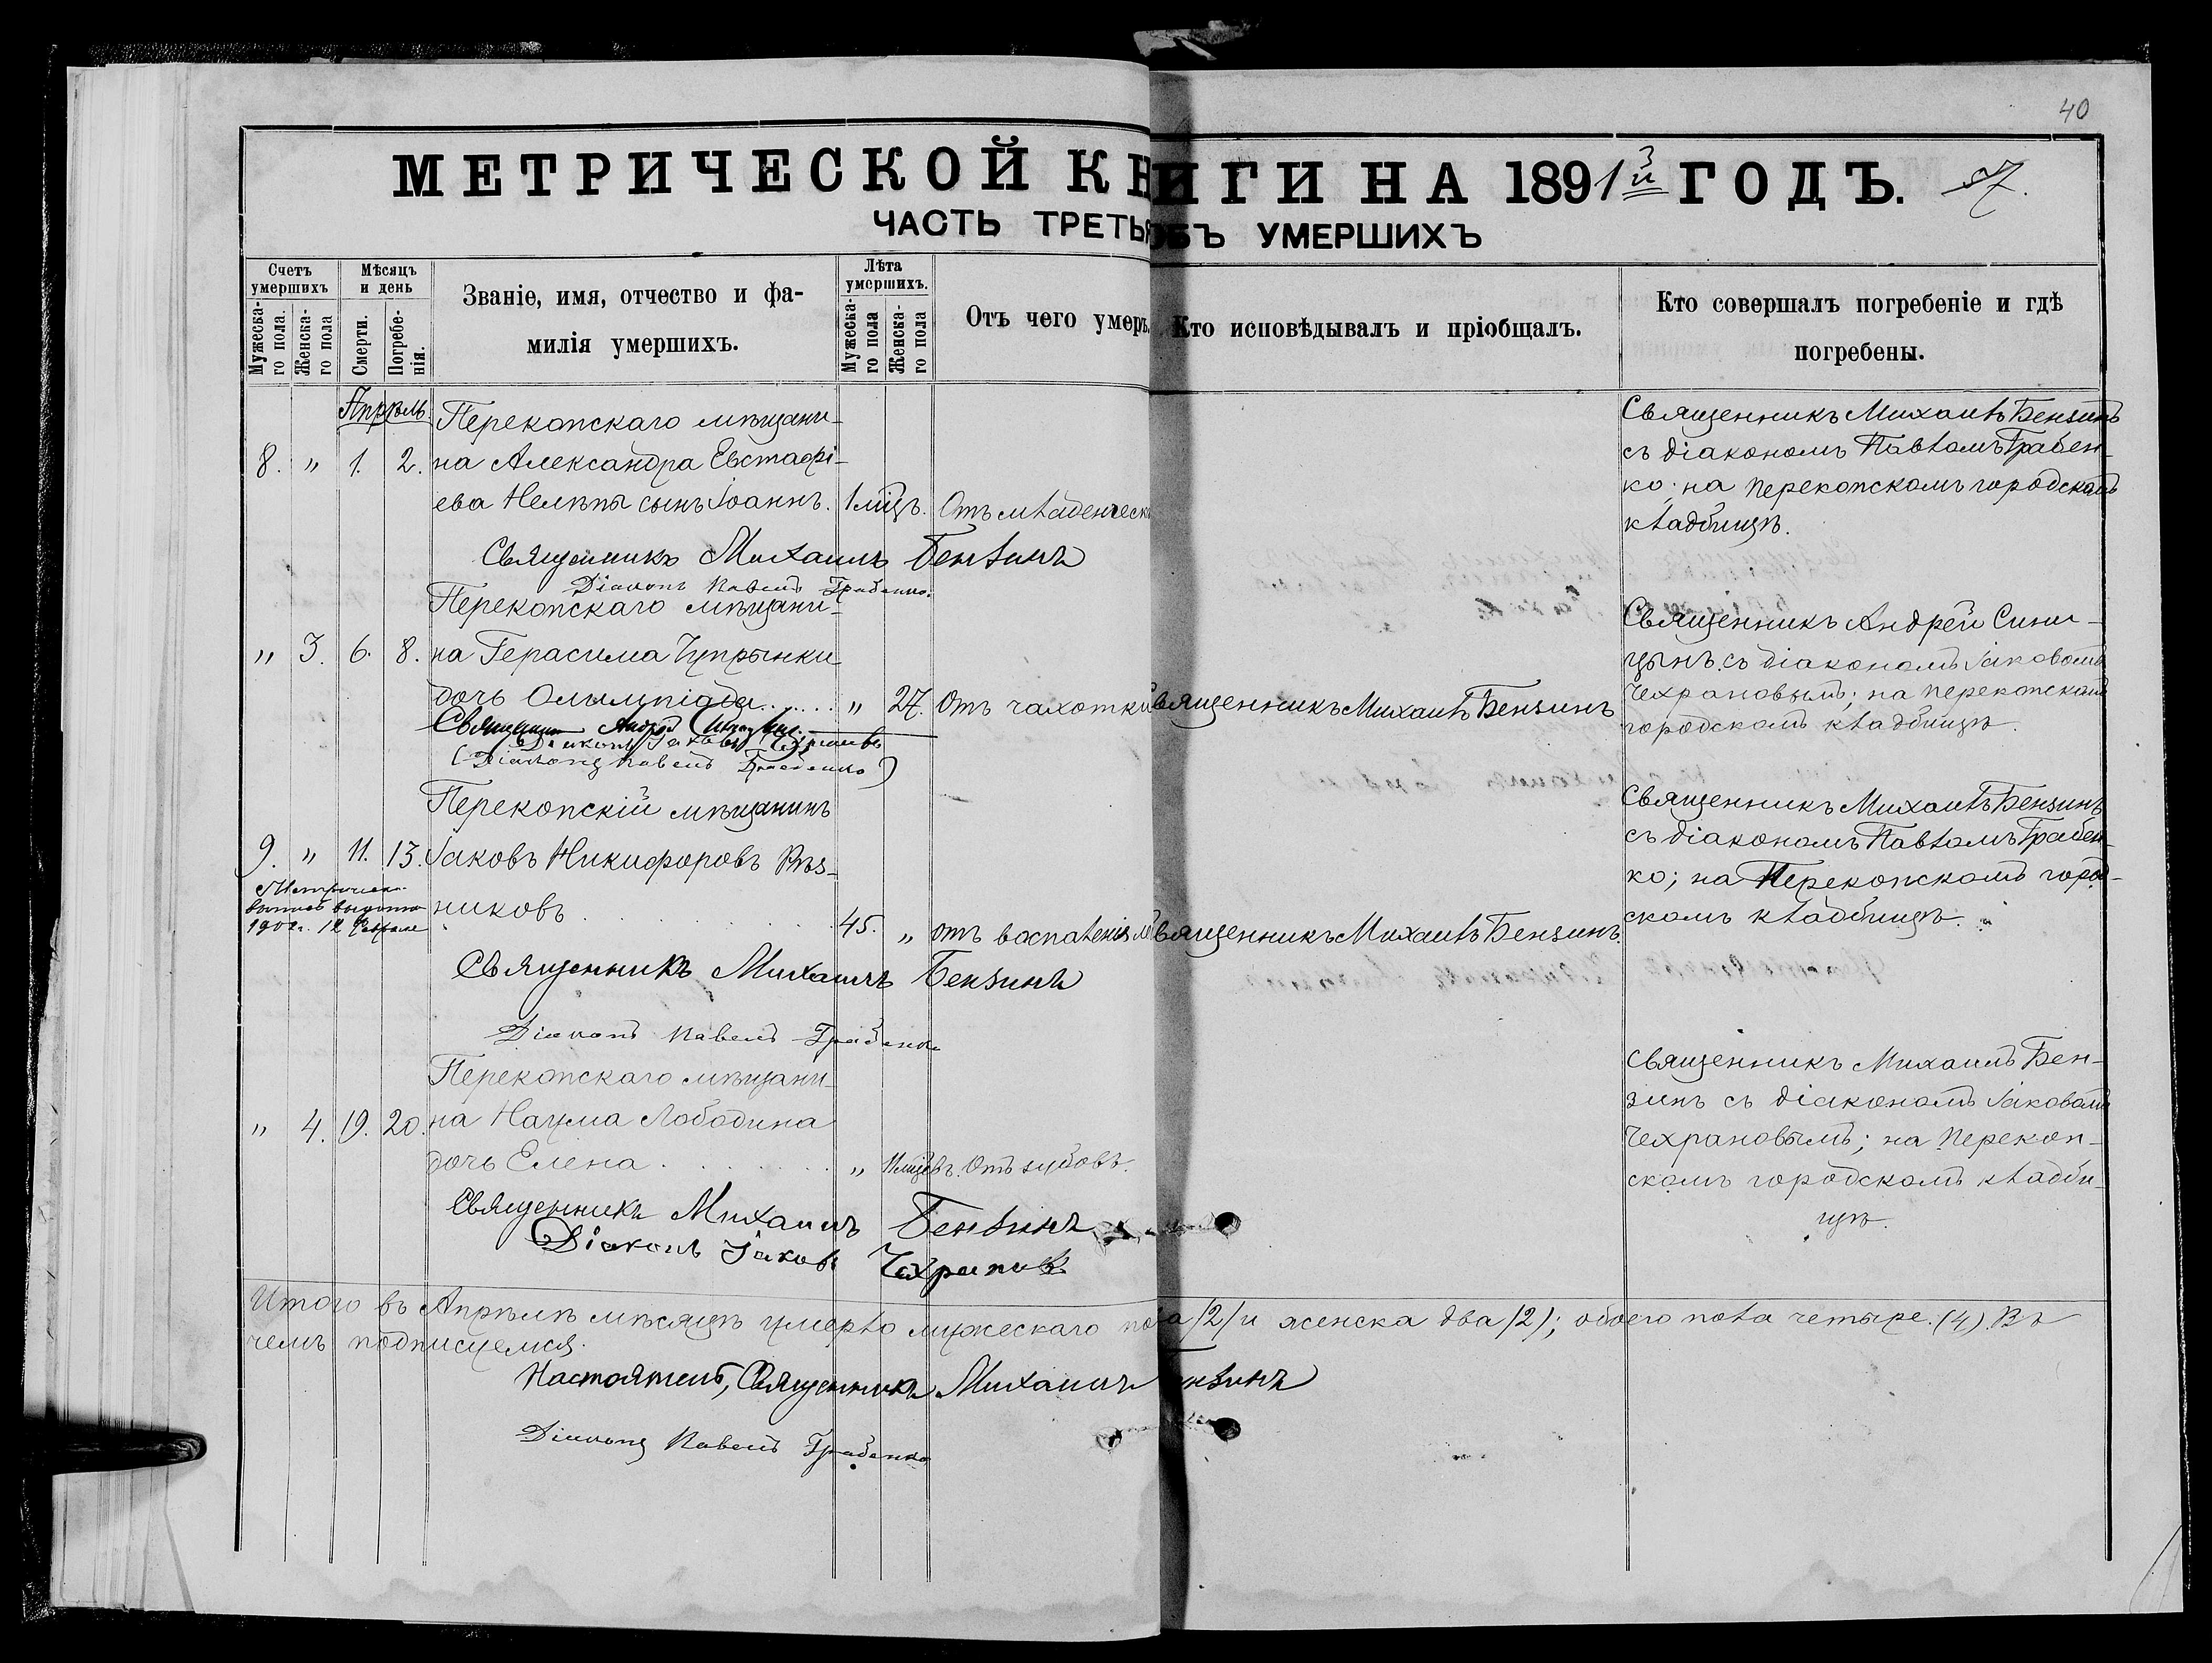 40
МЕТРИЧЕСКОЙ КНИГИ НА 1893й ГОДЪ. 57.
ЧАСТЬ ТРЕТЬЯ ОБЪ УМЕРШИХЪ
Счетъ умершихъ
Мужеска-го пола.
Женска-го пола
Мѣсяцъ и день
Смерти.
Погребе-нія.
Званіе, имя, отчество и фа-
милія умершихъ.
Лѣта умершихъ.
Мужеска-го пола
Женска-го пола
Отъ чего умеръ.
Кто исповѣдывалъ и пріобщалъ.
Кто совершалъ погребеніе и гдѣ
погребены.
Апрѣль.
Перекопскаго мѣщани-
8. " 1. 2. на Александра Евстафі-
ева Нелѣпы сынъ Іоаннъ. 1 мцъ. Отъ младенческ
Священникъ Михаилъ Бензинъ
съ діакономъ Павломъ Грабен-
ко; на Перекопскомъ городскомъ
кладбищѣ.
Священникъ Михаилъ Бензинъ
Діаконъ Павелъ Грабенко.
Перекопскаго мѣщани-
" 3. 6. 8. на Герасима Чупрынки
дочь Олимпіада " 27. Отъ чахотки Священникъ Михаилъ Бензинъ
Священникъ Андрей Сини-
цынъ съ діакономъ Іаковомъ
Чехрановымъ; на Перекопскомъ
городскомъ кладбищѣ.
Священникъ Андрей Синицынъ
Діаконъ Іаковъ Чехрановъ
(Діаконъ Павелъ Грабенко)
Перекопскій мѣщанинъ
9. " 11. 13. Іаковъ Никифоровъ Рѣз-
никовъ 45. " отъ воспаленія Священникъ Михаилъ Бензинъ.
1902г. 12 Февраля
Священникъ Михаилъ Бензинъ
съ діакономъ Павломъ Грабен-
ко; на Перекопскомъ город-
скомъ кладбищѣ.
Священникъ Михаилъ Бензинъ
Діаконъ Павелъ Грабенко
Перекопскаго мѣщани-
" 4. 19. 20. на Наума Лободина
дочь Елена " 11 мцвъ. Отъ зубовъ.
Священникъ Михаилъ Бен-
зинъ съ діакономъ Іаковомъ
Чехрановымъ; на Перекоп-
скомъ городскомъ кладби-
щѣ.
Священникъ Михаилъ Бензинъ
Діаконъ Іаковъ Чехрановъ
Итого въ Апрѣлѣ мѣсяцѣ умерло мужескаго пола /2/ и женска два /2/; обоего пола четыре. (4) Въ
чемъ подписуемся.
Настоятель, Священникъ Михаилъ Бензинъ
Діаконъ Павелъ Грабенко